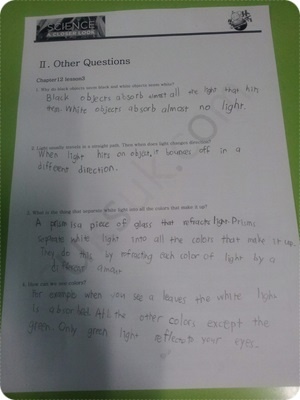 SCIENCE
A CLOSER LOOK
II. Other Questions
Chapter12 lesson3
1. Why do black objects look black and white objects look white?
Black objects absorb almost all the light that hits
them. White objects absorb almost no light.
2. Light usually travels in a straight path. Then when does light changes direction?
When light hits an object, it bounces off in a
different direction.
3. What is the thing that separate white light into all the colors that make it up?
A prism is a piece of glass that refracts light. Prisms
separate white light into all the colors that make it up.
They do this by refracting each color of light by a
different amount
4. How can we see colors?
For example when you see a leaves the white light
is absorbed. All the other colors except the
green. Only green light reflects to your eyes.